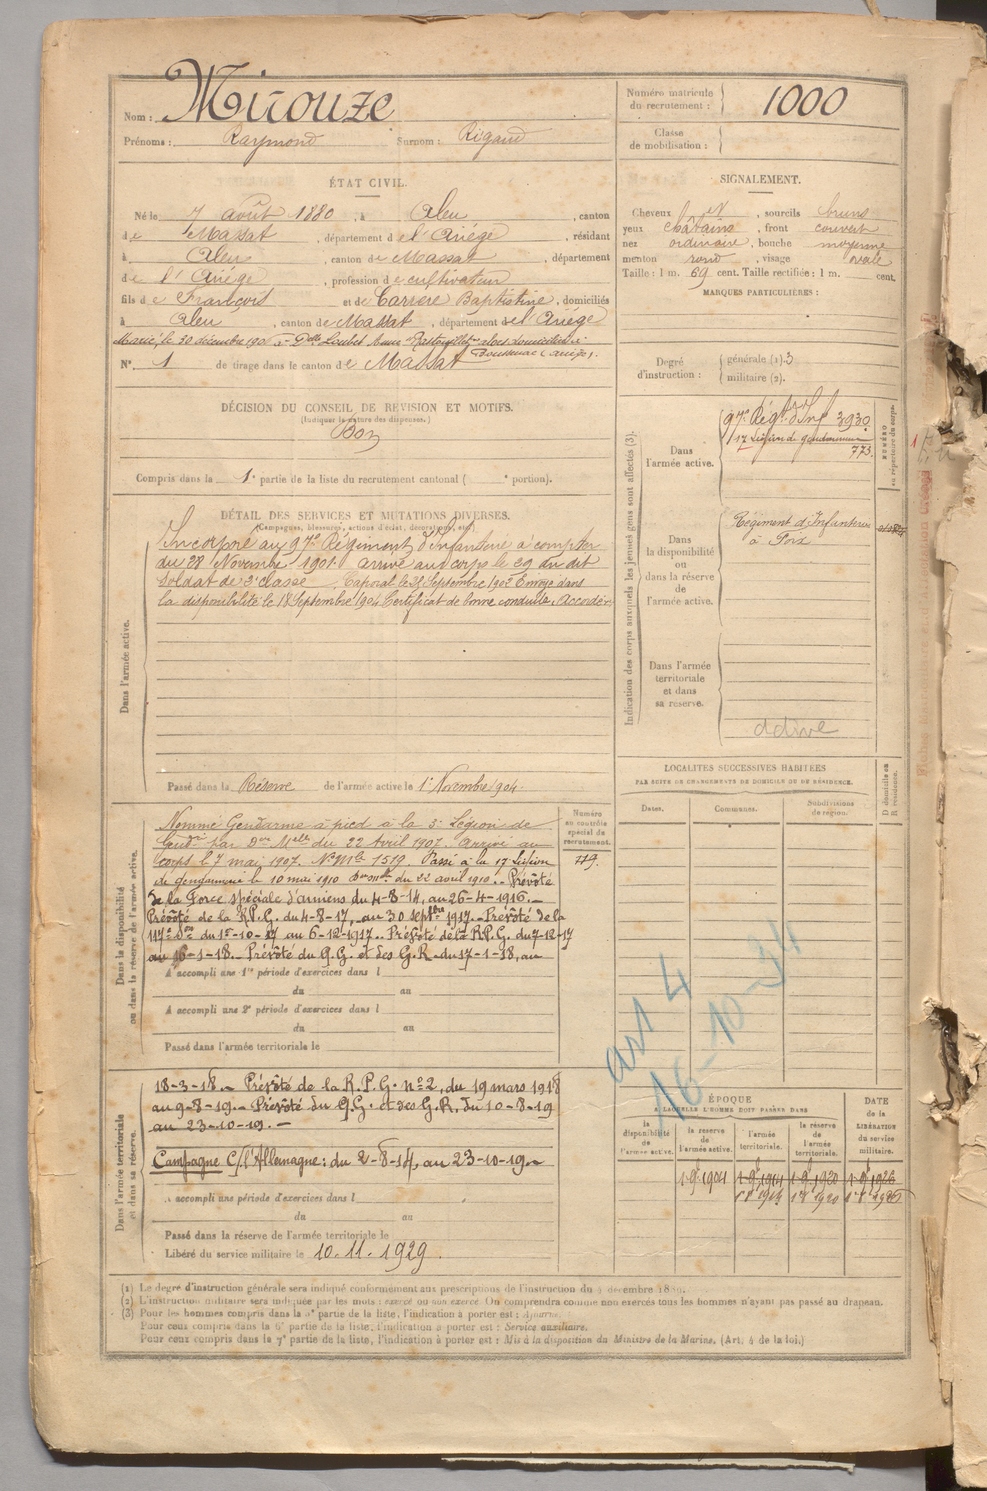 Nom : Mirouze
Prénoms : Raymond Surnom : Rigaud
Numéro matricule du recrutement : 1000
Classe de mobilisation :
ÉTAT CIVIL.
Né le 7 août 1880, à Aleu, canton
de Massat, département de l'Ariège, résidant
à Aleu, canton de Massat, département
de l'Ariège, profession de cultivateur
fils de François et de Carrere Baptistine, domiciliés
à Aleu, canton de Massat, département de l'Ariège
Marié le 30 décembre 190 à Delle Loubet Anna alors domiciliée à
Boussenac (Ariège).
N° 1 de tirage dans le canton de Massat
SIGNALEMENT.
Cheveux et , sourcils bruns
yeux châtains, front couvert
nez ordinaire, bouche moyenne
menton rond, visage ovale
Taille : 1 m. 69 cent. Taille rectifiée : 1 m. cent.
MARQUES PARTICULIÈRES :
Degré d'instruction : générale (1). 3
militaire (2).
DÉCISION DU CONSEIL DE REVISION ET MOTIFS.
(Indiquer la nature des dispenses.)
Bon
Compris dans la 1e partie de la liste du recrutement cantonal ( e portion).
DÉTAIL DES SERVICES ET MUTATIONS DIVERSES.
(Campagnes, blessures, actions d'éclat, décorations, etc.)
Dans l'armée active.
Incorporé au 97e Régiment d'Infanterie à compter
du 28 Novembre 1901 arrivé au corps le 29 du dit
Soldat de 2e classe. Caporal le 21 Septembre 1902 Envoyé dans
la disponibilité le 18 Septembre 1904 Certificat de bonne conduite Accordé
Passé dans la Réserve de l'armée active le 1er Novembre 1904.
Indication des corps auxquels les jeunes gens sont affectés (3).
Dans l'armée active.
97e Régt d'Inf 3930
17e Légion de gendarmerie
773.
NUMÉRO au répertoire du corps.
Dans la disponibilité ou dans la réserve de l'armée active.
Régiment d'Infanterie
à Foix
Dans l'armée territoriale et dans sa réserve.
LOCALITÉS SUCCESSIVES HABITÉES
PAR SUITE DE CHANGEMENTS DE DOMICILE OU DE RÉSIDENCE.
Dates. Communes. Subdivisions de région. D domicile ou R résidence.
Dans la disponibilité ou dans la réserve de l'armée active.
Numéro au contrôle spécial du recrutement.
Nommé Gendarme à pied à la 3e Légion de
Gendie par Don Mlle du 22 Avril 1907. Arrivé au
corps le 7 mai 1907. N° Mle 1519. Passé à la 17 Légion
de gendarmerie le 10 mai 1910 Don Mlle du 22 avril 1910. - Prévôté
de la Force spéciale d'amiens du 4-8-14, au 26-4-1916. -
Prévôté de la R.P.G. du 4-8-17, au 30 septbre 1917. - Prévôté de la
117e Don du 1er-10-17 au 6-12-1917. - Prévôté de la R.P.G. du 7-12-17
au 16-1-18. - Prévôté du Q.G. et des G.R. du 17-1-18, au
A accompli une 1re période d'exercices dans l
du au
A accompli une 2e période d'exercices dans l
du au
Passé dans l'armée territoriale le
art 4
16-10-34
Dans l'armée territoriale et dans sa réserve.
18-3-18. - Prévôté de la R.P.G. n°2, du 19 mars 1918
au 9-8-19. - Prévôté du Q.G. et des G.R. du 10-8-19
au 23-10-19. -
Campagne C/ l'Allemagne : du 2-8-14, au 23-10-19. -
A accompli une période d'exercices dans l
du au
Passé dans la réserve de l'armée territoriale le
Libéré du service militaire le 10-11-1929.
ÉPOQUE
A LAQUELLE L'HOMME DOIT PASSER DANS
DATE de la LIBÉRATION du service militaire.
la disponibilité de l'armée active. la réserve de l'armée active. l'armée territoriale. la réserve de l'armée territoriale.
1 9e 1904 1 9e 1914 1 9e 1920 1 9e 1926
(1) Le degré d'instruction générale sera indiqué conformément aux prescriptions de l'instruction du 4 décembre 1889.
(2) L'instruction militaire sera indiquée par les mots : exercé ou non exercé. On comprendra comme non exercés tous les hommes n'ayant pas passé au drapeau.
(3) Pour les hommes compris dans la 5e partie de la liste, l'indication à porter est : Ajourné.
Pour ceux compris dans la 6e partie de la liste, l'indication à porter est : Service auxiliaire.
Pour ceux compris dans la 7e partie de la liste, l'indication à porter est : Mis à la disposition du Ministre de la Marine. (Art. 4 de la loi.)